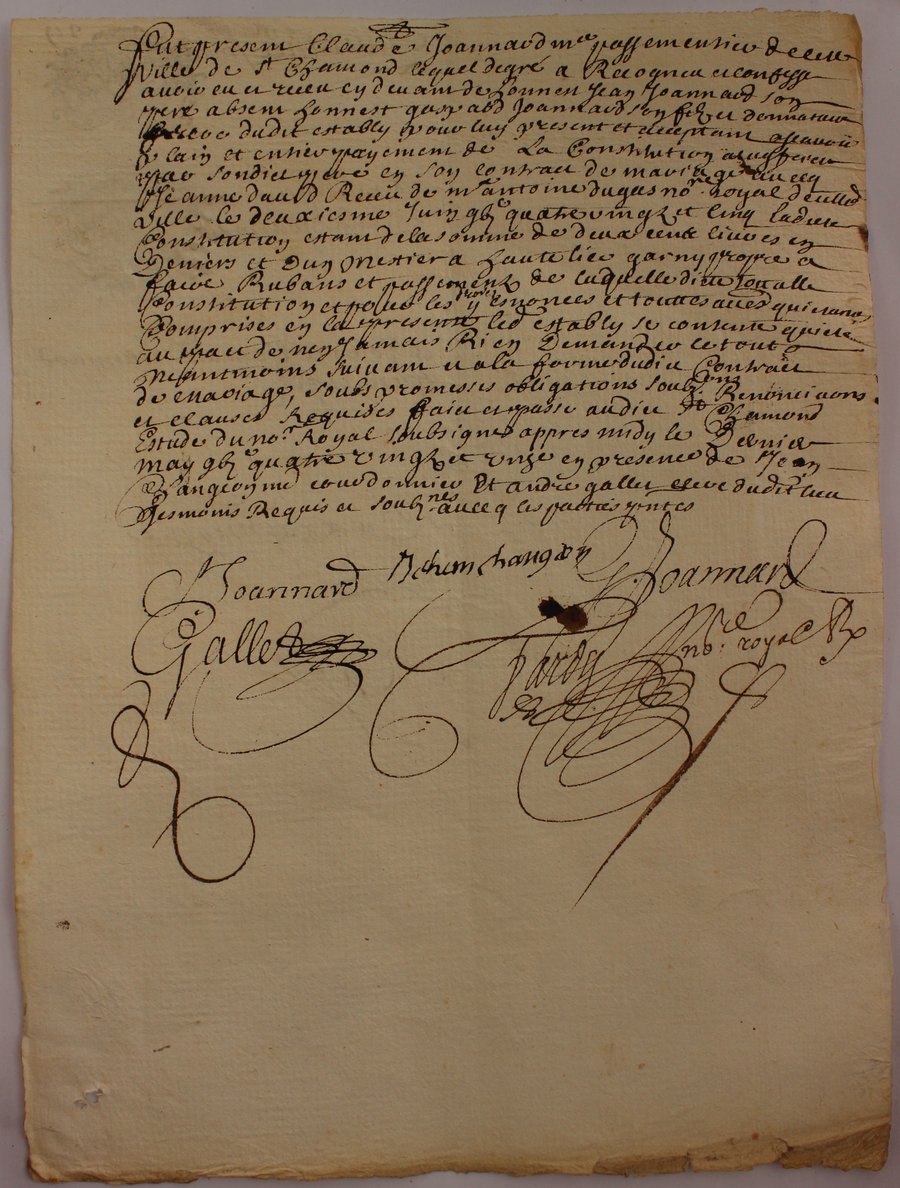 Fut present Claude Joannard m.e passementier de cette
ville de st Chamond lequel de gré a Recogneu et confessé
avoir eu et receu cy devant de honnest Jean Joannard son
pere absent honnest gaspard Joannard son filz et donnataire
frere dudit estably pour luy present et acceptant a scavoir
plain et entier payement de La Constitution a luy
par sondict pere en son contract de mariage avecq
Jeanne david Receu de m.e antoine dugas no.re royal de lad
ville le deuxiesme Juin gbc quatre vingtz et Cinq ladite
Constitution estant de la somme de deux cent livres en
deniers et d'un mestier a haute lice garny propre a
faire Rubans et passementz de laquelle dite
Constitution et pour les y enoncees et touttes autres quictances
Comprises en la presente led estably se contente quicte
au pact de n'en Jamais Rien Demander le tout
Neantmoins suivant et a la forme dudit Contract
de mariage, soubs promesses obligations soubz.ons Renonciaons
et clauses Requises faict et passé audict st Chamond
Estude du no.re Royal soubsigné appres midy le Dernier
may gbc quatre vingtz et unze en presence de Jean
Changeon me courdonnier Et andré gallet clerc dudit lieu
tesmoins Requis et soubz.nes avecq les parties
J Joannard Jehan changeon G. Joannard
Gallet
fardy no.re royal